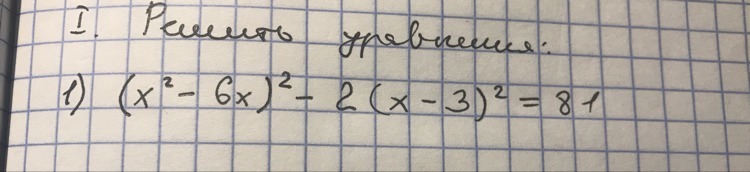 I. Решить уравнения:
1) (x² - 6x)² - 2(x - 3)² = 81